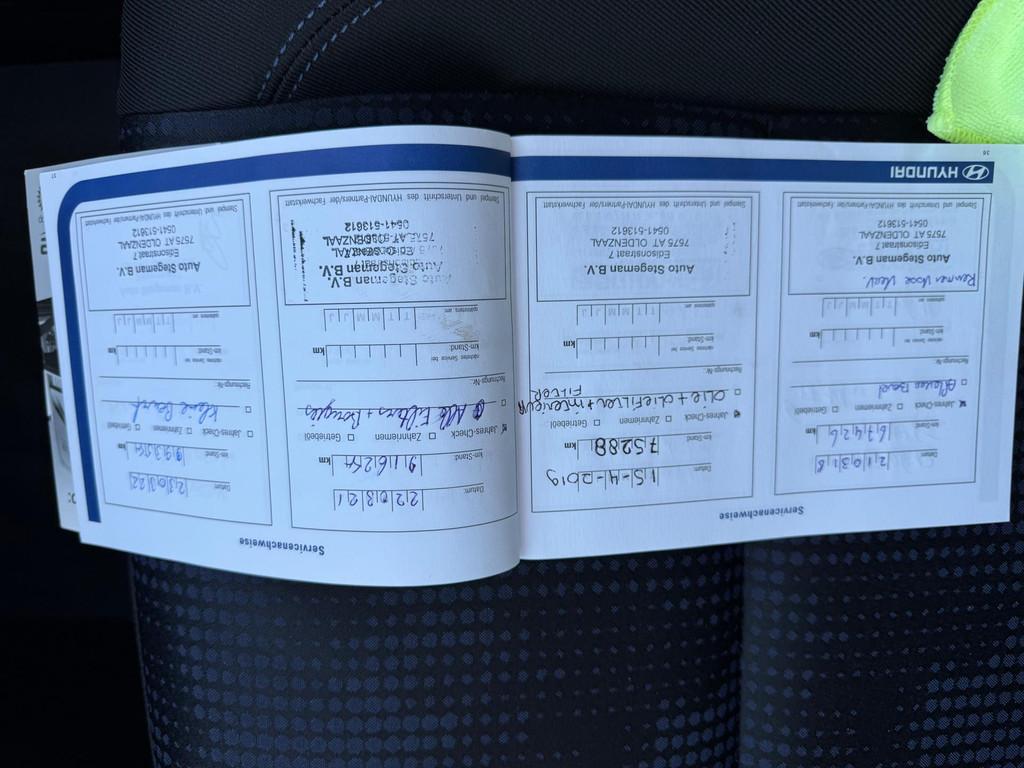 Servicenachweise
Datum:
210318
km-Stand:
67426
km
Jahres-Check
Zahnriemen
Getriebeöl
Rechnung-Nr.
nächster Service bei
km-Stand:
km
spätestens am:
T T M M J J
Remmen Voor
Auto Stegeman B.V.
Edisonstraat 7
7575 AT OLDENZAAL
0541-513612
Stempel und Unterschrift des HYUNDAI-Partners/der Fachwerkstatt
Datum:
15-4-2019
km-Stand:
75288 km
Jahres-Check
Zahnriemen
Getriebeöl
olie + oliefilter + interieur
FILTER
Rechnung-Nr.
nächster Service bei
km-Stand:
km
spätestens am:
T T M M J J
Auto Stegeman B.V.
Edisonstraat 7
7575 AT OLDENZAAL
0541-513612
Stempel und Unterschrift des HYUNDAI-Partners/der Fachwerkstatt
HYUNDAI
36
Servicenachweise
Datum:
220321
km-Stand:
km
Jahres-Check
Zahnriemen
Getriebeöl
Alle Filters + Bougies
Rechnung-Nr.
nächster Service bei
km-Stand:
km
spätestens am:
T T M M J J
Auto Stegeman B.V.
7575 AT OLDENZAAL
0541-513612
Stempel und Unterschrift des HYUNDAI-Partners/der Fachwerkstatt
Datum:
230322
km-Stand:
km
Jahres-Check
Zahnriemen
Getriebeöl
Kleine Beurt
Rechnung-Nr.
nächster Service bei
km-Stand:
km
spätestens am:
T T M M J J
Auto Stegeman B.V.
Edisonstraat 7
7575 AT OLDENZAAL
0541-513612
Stempel und Unterschrift des HYUNDAI-Partners/der Fachwerkstatt
37